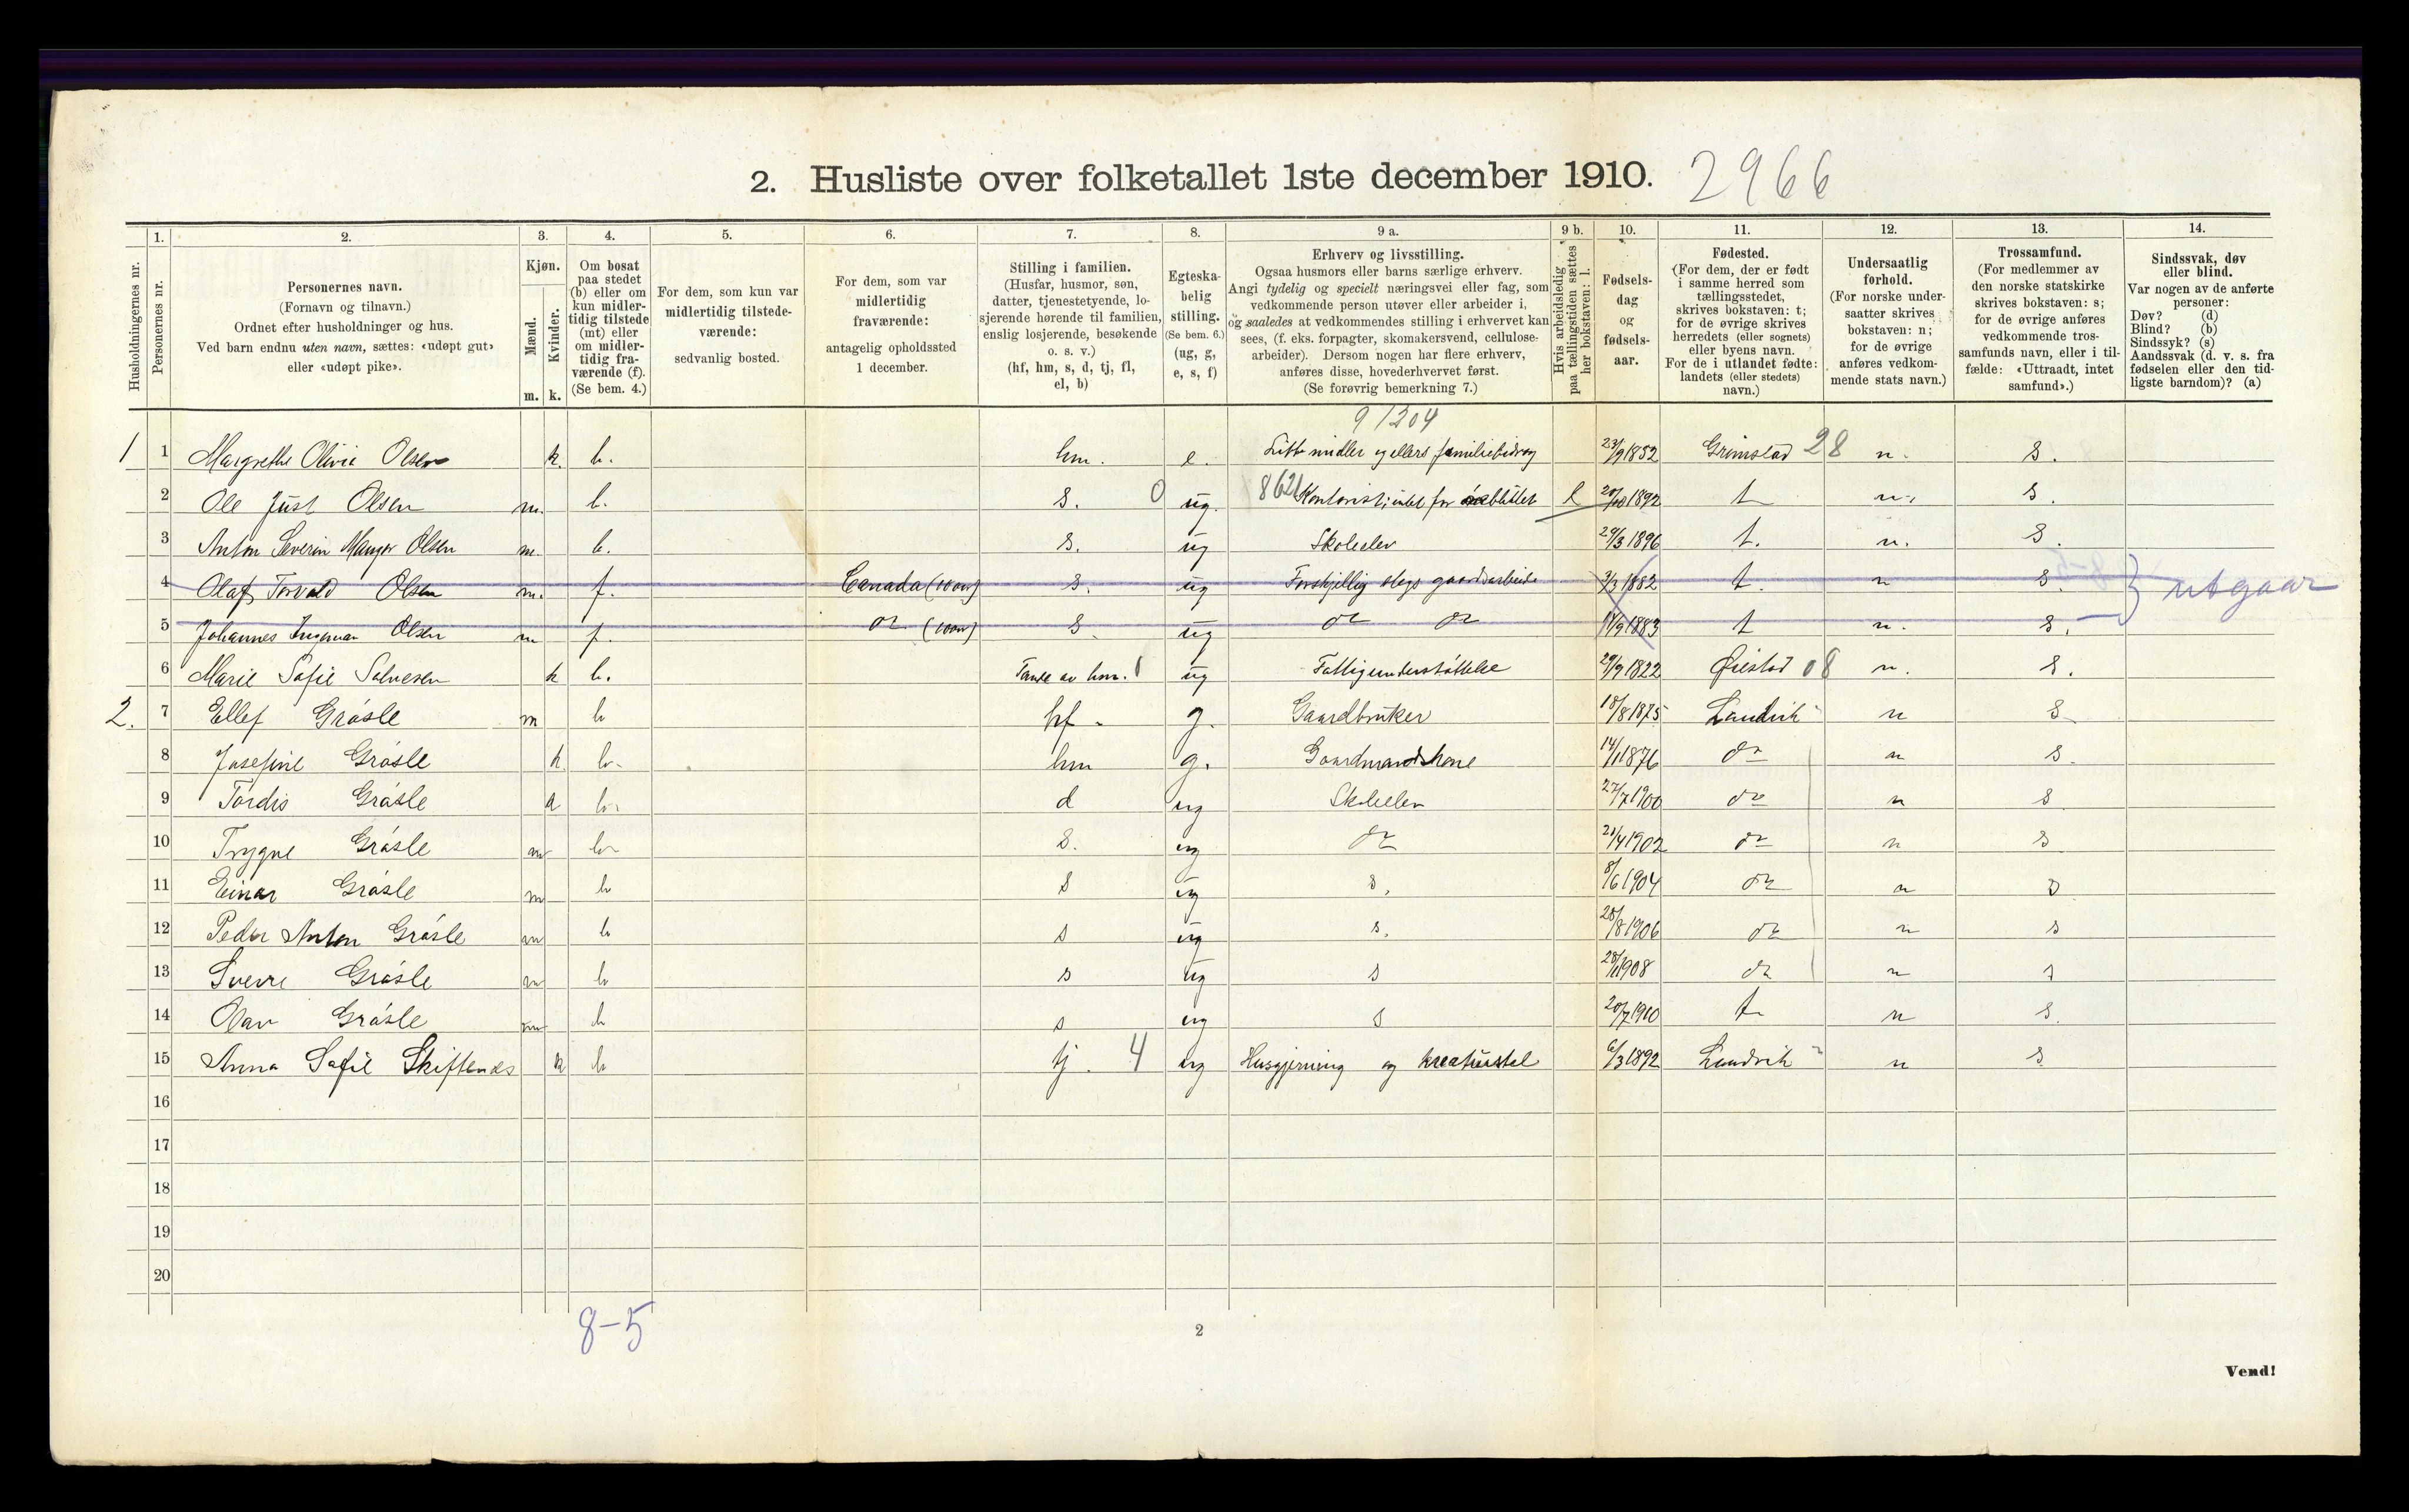 2. Husliste over folketallet 1ste december 1910. 2966
Husholdningernes nr.
1. Personernes nr.
2. Personernes navn.
(Fornavn og tilnavn.)
Ordnet efter husholdninger og hus.
Ved barn endnu uten navn, sættes: «udøpt gut»
eller «udøpt pike».
3. Kjøn.
Mænd. Kvinder.
m. k.
4. Om bosat
paa stedet
(b) eller om
kun midler-
tidig tilstede
(mt) eller
om midler-
tidig fra-
værende (f).
(Se bem. 4.)
5. For dem, som kun var
midlertidig tilstede-
værende:
sedvanlig bosted.
6. For dem, som var
midlertidig
fraværende:
antagelig opholdssted
1 december.
7. Stilling i familien.
(Husfar, husmor, søn,
datter, tjenestetyende, lo-
sjerende hørende til familien,
enslig losjerende, besøkende
o. s. v.)
(hf, hm, s, d, tj, fl,
el, b)
8. Egteska-
belig
stilling.
(Se bem. 6.)
(ug, g,
e, s, f)
9 a. Erhverv og livsstilling.
Ogsaa husmors eller barns særlige erhverv.
Angi tydelig og specielt næringsvei eller fag, som
vedkommende person utøver eller arbeider i,
og saaledes at vedkommendes stilling i erhvervet kan
sees, (f. eks. forpagter, skomakersvend, cellulose-
arbeider). Dersom nogen har flere erhverv,
anføres disse, hovederhvervet først.
(Se forøvrig bemerkning 7.)
9 b. Hvis arbeidsledig
paa tællingstiden sættes
her bokstaven: l.
10. Fødsels-
dag
og
fødsels-
aar.
11. Fødested.
(For dem, der er født
i samme herred som
tællingsstedet,
skrives bokstaven: t;
for de øvrige skrives
herredets (eller sognets)
eller byens navn.
For de i utlandet fødte:
landets (eller stedets)
navn.)
12. Undersaatlig
forhold.
(For norske under-
saatter skrives
bokstaven: n;
for de øvrige
anføres vedkom-
mende stats navn.)
13. Trossamfund.
(For medlemmer av
den norske statskirke
skrives bokstaven: s;
for de øvrige anføres
vedkommende tros-
samfunds navn, eller i til-
fælde: «Uttraadt, intet
samfund».)
14. Sindssvak, døv
eller blind.
Var nogen av de anførte
personer:
Døv? (d)
Blind? (b)
Sindssyk? (s)
Aandssvak (d. v. s. fra
fødselen eller den tid-
ligste barndom)? (a)
1 1 Margrethe Olivia Olsen k. b. hm. e. familiebidrag 23/9 1852 Grimstad 28 n. s.
2 Ole Just Olsen m. b. s. 0 ug. 8621 Kontorist; l 1892 t n. s.
3 Anton Severin Olsen m. b. s. ug Skoleelev 29/3 1896 t. n. s.
4 Olaf Torvald Olsen m. f. Canada s. ug Forskjellig slags gaardsarbeide 3/3 1882 t. n s. } utgaar
5 Johannes Ingeman Olsen m f. do s. ug do do 1883 t n. s.
6 Marie Sofie Salvesen k b. Tante av hm. ug Fattigunderstøttelse 29/9 1822 Øiestad 08 n. s.
2. 7 Ellef Gråsle m b hf. g. Gaardbruker 18/8 1875 Landvik n s
8 Josefine Gråsle k b. hm g. Gaardmandskone 14/11 1876 do n s.
9 Tordis Gråsle k b. d ug Skoleelev 27/7 1900 do n s
10 Trygve Gråsle m b s. ug do 1902 do n s
11 Einar Gråsle m b s ug s. 8/6 1904 do n s
12 Peder Anton Gråsle m b s ug s. 28/8 1906 do n s
13 Sverre Gråsle m b s ug s 1908 do n s
14 Olav Gråsle m b s ug s 20/7 1910 t n s.
15 Anna Sofie Skiftenes k b tj. 4 ug Husgjerning og kreaturstel 6/3 1892 Landvik n s
16
17
18
19
20
8-5
2
Vend!